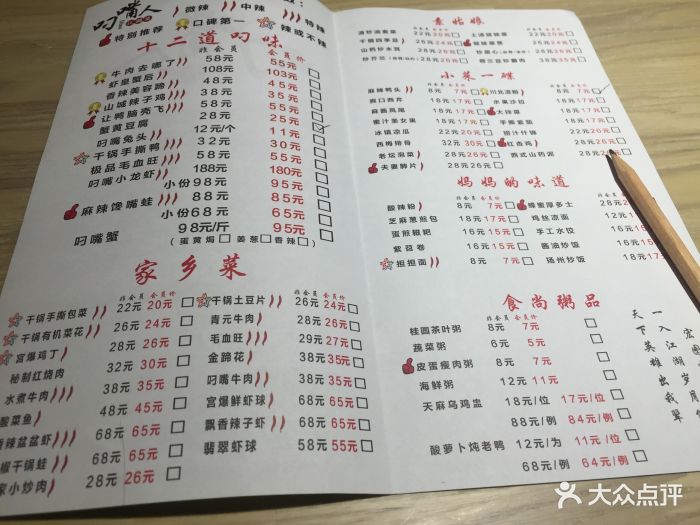 叼嘴人
微辣 中辣 特辣
特别推荐 口碑第一 辣或不辣
十二道叼味
非会员 会员价
牛肉去哪了 58元 55元
虾皇蟹后 108元 103元
香辣美容蹄 48元 45元
山城辣子鸡 38元 35元
让鸭脑壳飞 48元 45元
蟹黄豆腐 32元 30元
叼嘴兔头 12元/个 11元
干锅手撕鸭 32元 30元
极品毛血旺 58元 55元
叼嘴小龙虾 188元 180元
小份98元 95元
麻辣馋嘴蛙 88元 85元
小份68元 65元
叼嘴蟹 98元/斤 95元
(蛋黄焗 姜葱 香辣)
家乡菜
非会员 会员价
干锅手撕包菜 22元 20元
干锅有机菜花 26元 24元
宫爆鸡丁 28元 26元
秘制红烧肉 32元 30元
水煮牛肉 38元 35元
酸菜鱼 48元 45元
香辣盆盆虾 68元 65元
椒干锅蛙 68元 65元
家小炒肉 28元 26元
非会员 会员价
干锅土豆片 26元 24元
青元牛肉 28元 26元
毛血旺 28元 26元
金蹄花 38元 35元
叼嘴牛肉 38元 35元
宫爆鲜虾球 68元 65元
飘香辣子虾 68元 65元
翡翠虾球 58元 55元
素姑娘
非会员 会员价
清炒油麦菜 22元 20元
干煸四季豆 26元 24元
山药炒木耳 28元 26元
炒芥兰 28元 26元
上汤娃娃菜
荷兰豆炒腊肉 38元 35元
小菜一碟
麻辣鸭头 8元 7元
爽口西芹 18元 17元
麻酱凤尾 18元 17元
蜜汁圣女果 18元 17元
冰镇凉瓜 22元 20元
西梅排骨 32元 30元
老坛泡菜 18元 17元
夫妻肺片 28元 26元
川北凉粉 8元 7元
水果沙拉 18元 17元
大拌菜 18元 17元
手撕茄条 18元 17元
捞汁什锦 22元 20元
红杏鸡 28元 26元
西式山药泥 28元
妈妈的味道
非会员 会员价
酸辣粉 8元 7元
芝麻葱煎包 18元 17元
蛋煎糍粑 16元 15元
紫苕卷 16元 15元
担担面 8元 7元
蜂蜜厚多士 28元
鸡丝凉面 12元
手工水饺 16元 15元
酱油炒饭 16元 15元
扬州炒饭 18元 17元
食尚粥品
非会员 会员价
桂圆茶叶粥 8元 7元
蔬菜粥 6元 5元
皮蛋瘦肉粥 8元 7元
海鲜粥 12元 11元
天麻乌鸡盅 18元/位 17元/位
88元/例 84元/例
酸萝卜炖老鸭 12元/为 11元/位
68元/例 64元/例
天下英雄出我辈
一入江湖岁月催
大众点评